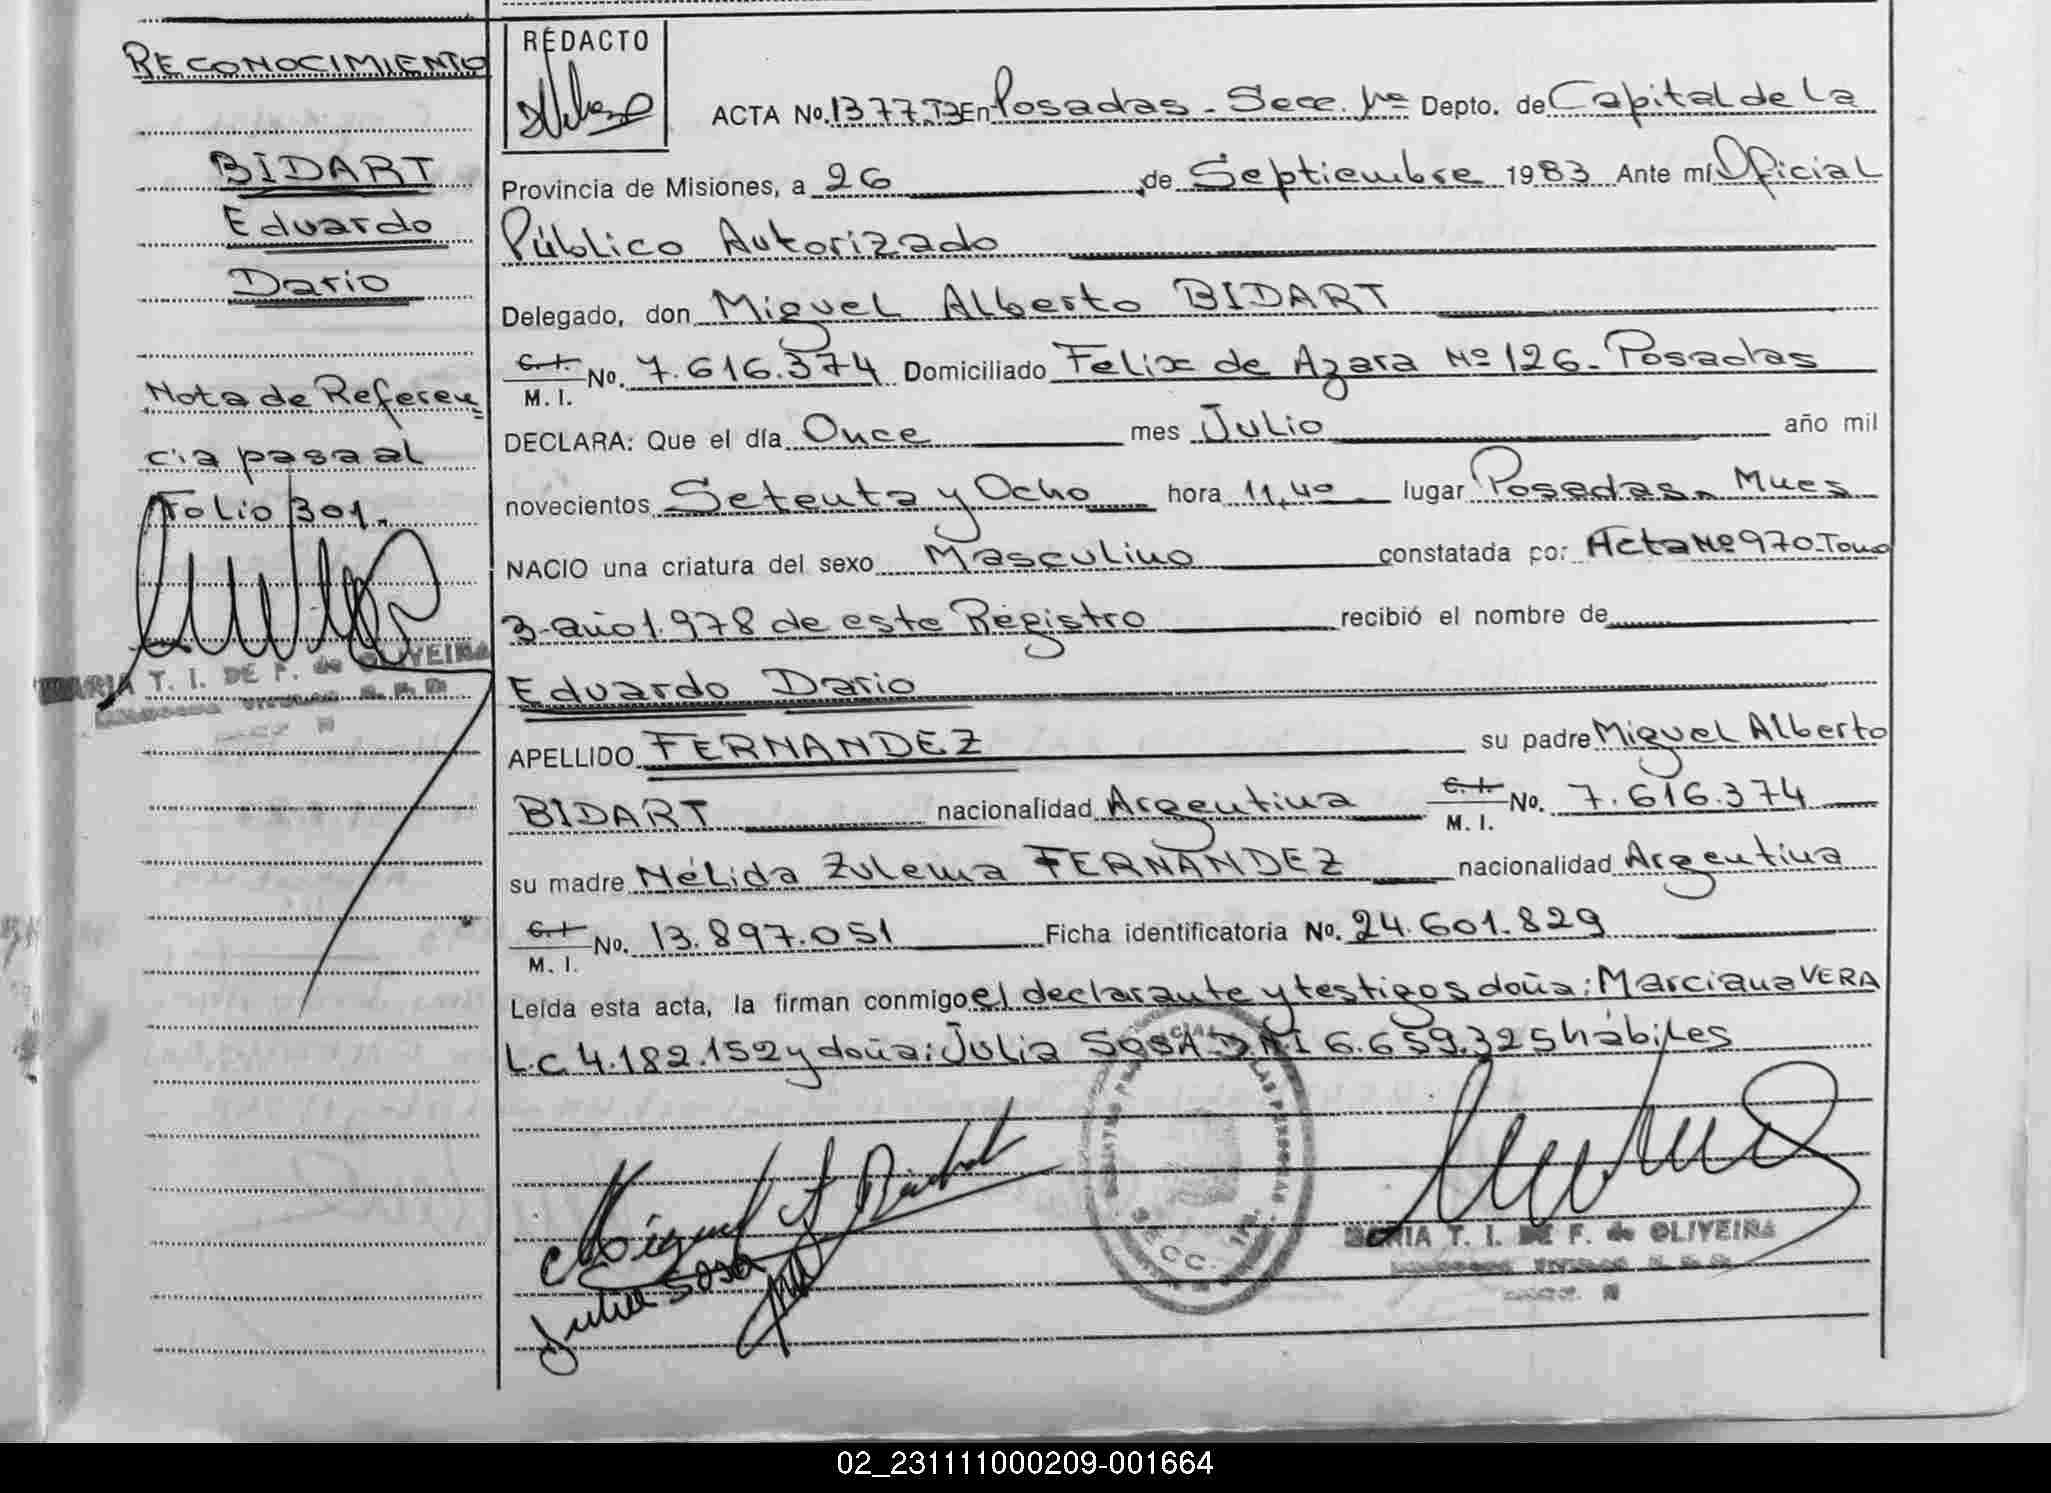 RECONOCIMIENTO
BIDART
Eduardo
Dario
Nota de Referen
cia pasa al
Folio 301.
MARIA T. I. DE F. de OLIVEIRA
REDACTO
ACTA No. 1377.T3 En Posadas - Secc. 1ra Depto. de Capital de la
Provincia de Misiones, a 26 de Septiembre 1983 Ante mí Oficial
Público Autorizado
Delegado, don Miguel Alberto BIDART
C. I. M. I. No. 7.616.374 Domiciliado Felix de Azara Nº 126 - Posadas
DECLARA: Que el día Once mes Julio año mil
novecientos Setenta y Ocho hora 11,40 lugar Posadas - Mnes
NACIO una criatura del sexo Masculino constatada por Acta Nº 970-Tomo
3-año 1.978 de este Registro recibió el nombre de
Eduardo Dario
APELLIDO FERNANDEZ su padre Miguel Alberto
BIDART nacionalidad Argentina C. I. M. I. No. 7.616.374
su madre Nélida Zulema FERNANDEZ nacionalidad Argentina
C. I. M. I. No. 13.897.051 Ficha identificatoria No. 24.601.829
Leída esta acta, la firman conmigo el declarante y testigos doña: Marciana VERA
L.C. 4.182.152 y doña: Julia SOSA D.N.I 6.659.325 hábiles
Miguel A Bidart
Julia Sosa
SECC. 1RA.
MARIA T. I. DE F. de OLIVEIRA
02_231111000209-001664